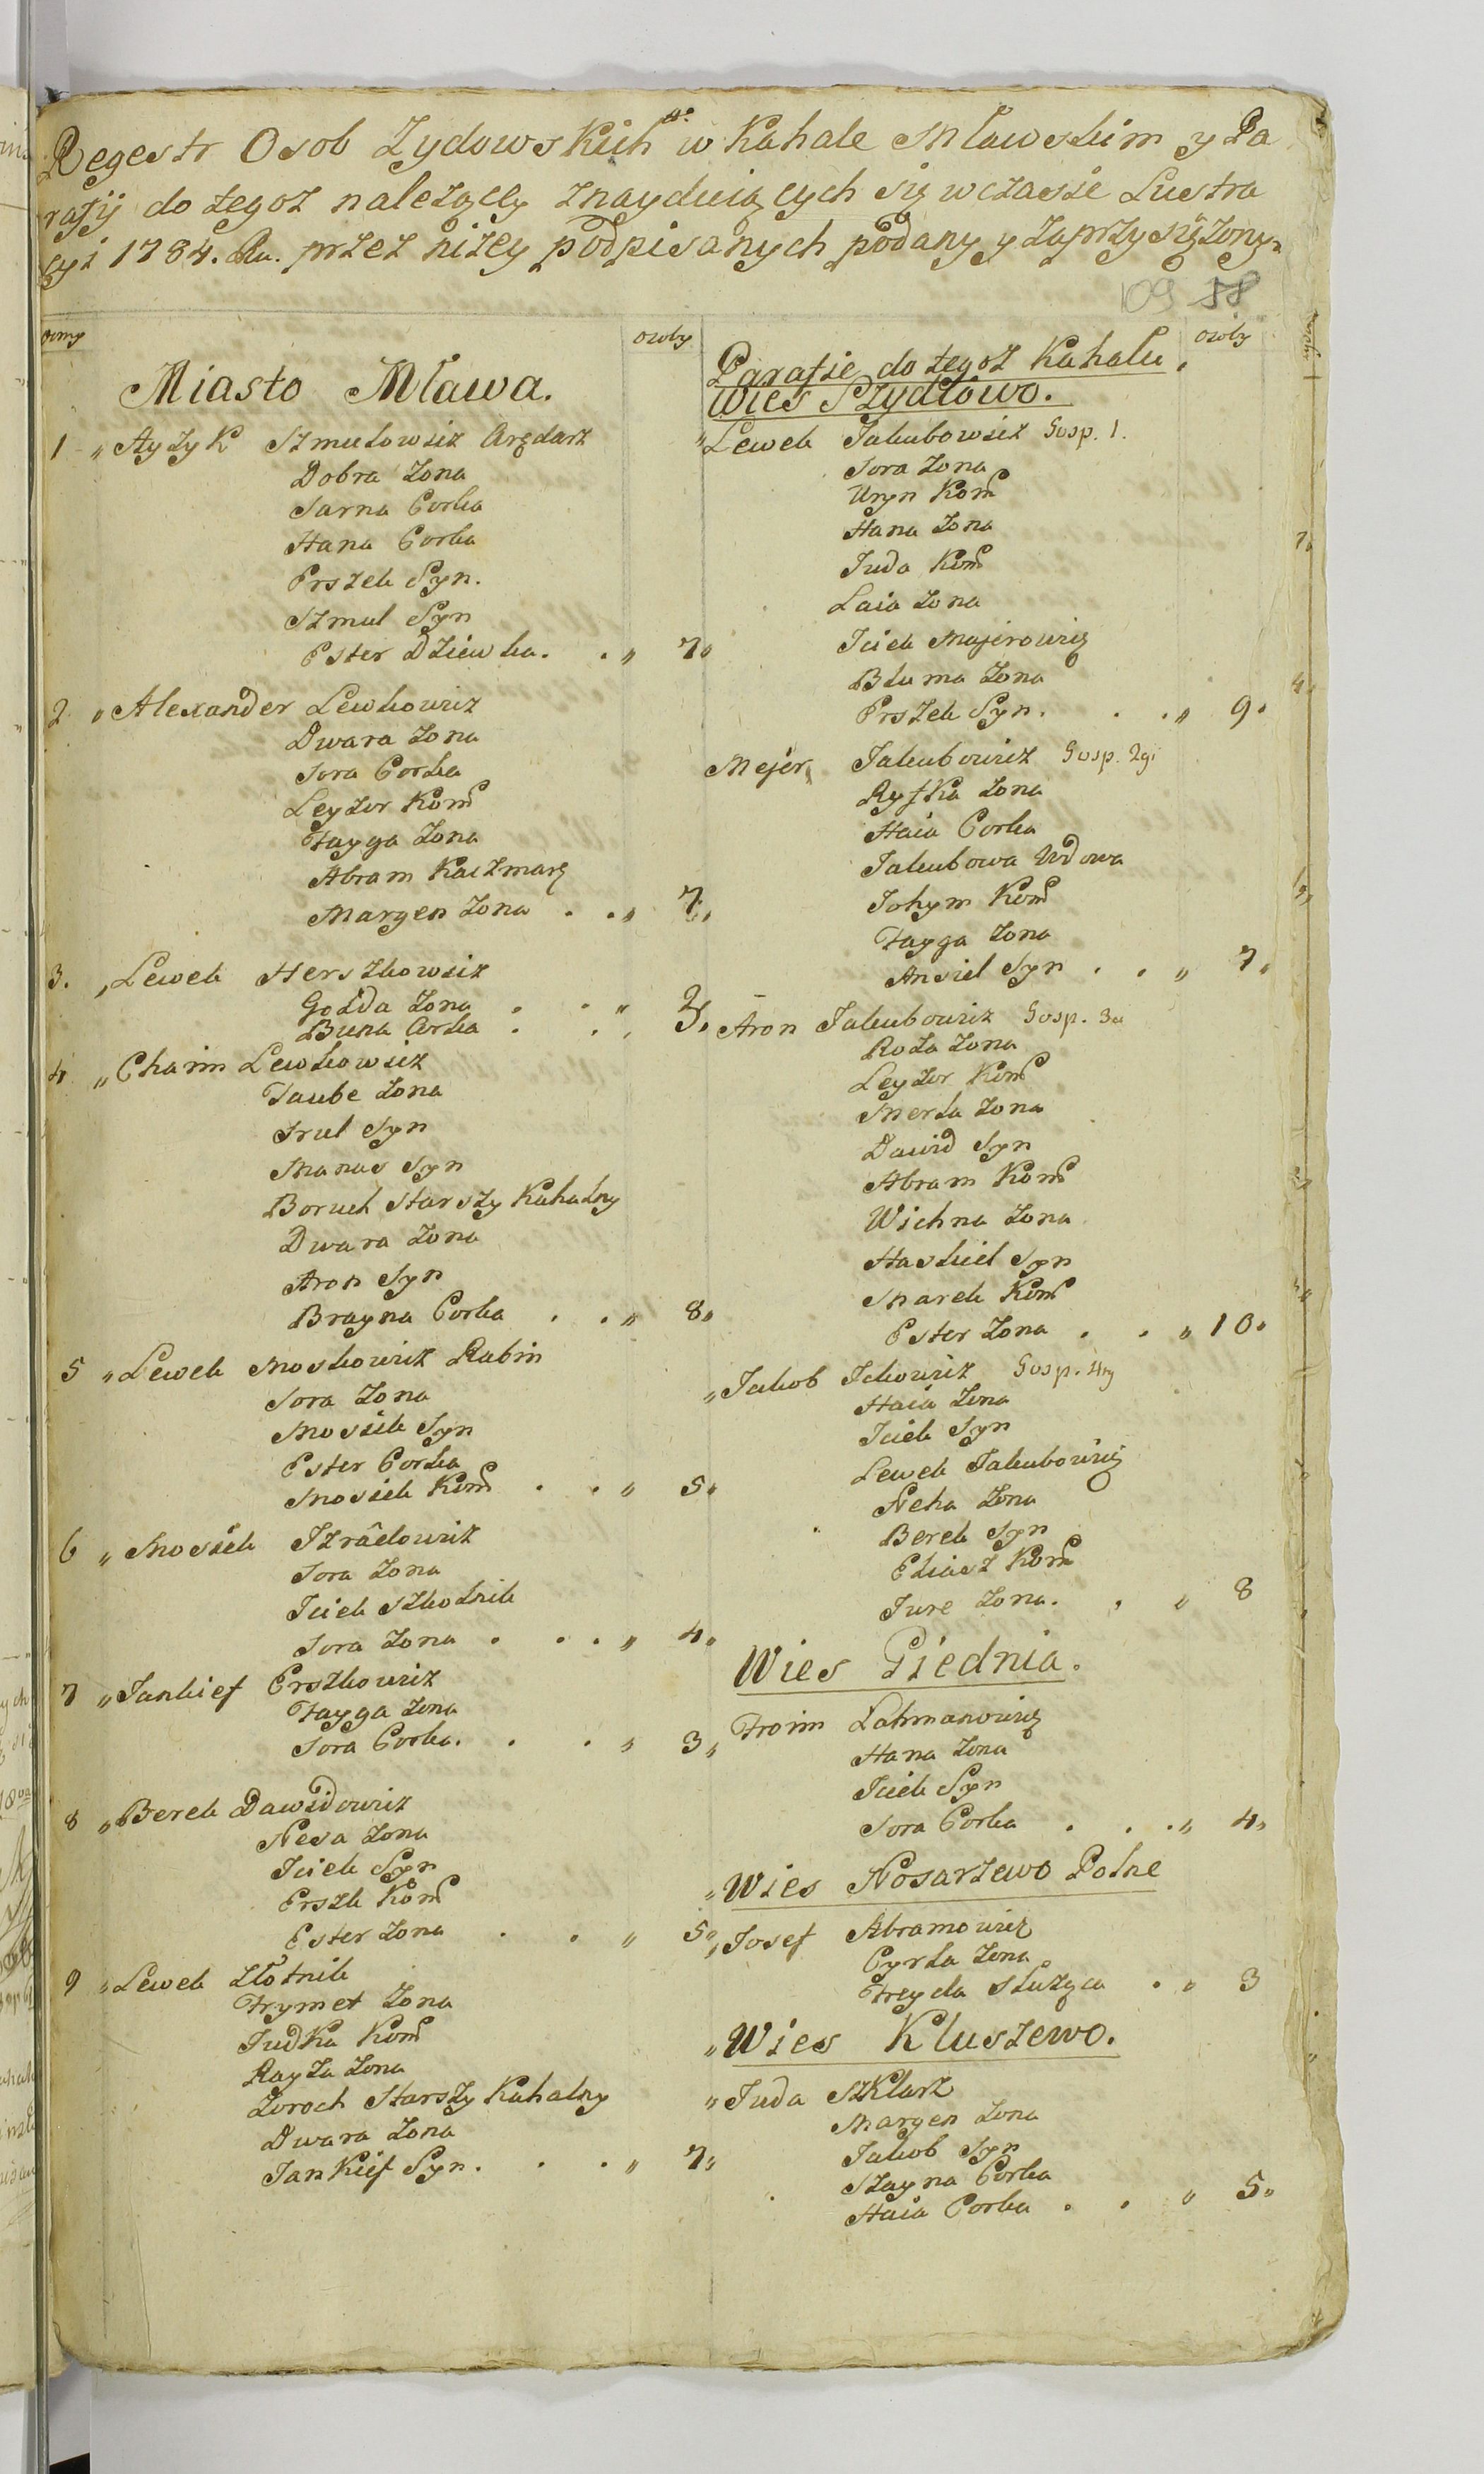 Regestr Osob Zydowskich w Kahale Mławskim y Pa
rafij do tegoz nalezącey znayduiących się w czasie Lustra
cyi 1784. Ru. przez nizey podpisanych podany y zaprzysiężony
109 58
Domy
osoby
Miasto Mława.
1 „ Ayzyk Szmulowicz Arędarz
Dobra Zona
Sarna Corka
Hana Corka
Erszek Syn.
Szmul Syn
Ester Dziewka. . „ 7„
2 „ Alexander Lewkowicz
Dwara Zona
Sora Corka
Leyzor Kom
Fayga Zona
Abram Kaczmarz
Margen Zona . . „ 7„
3. „ Lewek Herszkowicz
Golda Zona . . „ 2
Buna Corka . . „ 3.
4 „ Chaim Lewkowicz
Taube Zona
Srul Syn
Manas Syn
Boruch Starszy Kahalny
Dwara Zona
Aron Syn
Brayna Corka . . „ 8„
5 „ Lewek Moskowicz Rabin
Sora Zona
Mosiek Syn
Ester Corka
Mosiek Kom . . „ 5„
6 „ Mosiek Izraelowicz
Sora Zona
Iciek Szkolnik
Sora Zona . . . „ 4„
7 „ Jankief Erszkowicz
Fayga Zona
Sora Corka. . . „ 3„
8 „ Berek Dawidowicz
Nesa Zona
Iciek Syn
Erszk Kom
Ester Zona . . „ 5„
9 „ Lewek Złotnik
Frymet Zona
Judka Kom
Rayza Zona
Zoroch Starszy Kahalny
Dwara Zona
Jankief Syn. . . „ 7„
osoby
Parafie do tegoz Kahału,
Wies Szydłowo.
„ Lewek Jakubowicz Gosp. 1.
Sora Zona
Uryn Kom
Hana Zona
Juda Kom
Laia Zona
Iciek Majerowicz
Bluma Zona
Erszek Syn. . . „ 9„
Mejer Jakubowicz Gosp. 2gi
Ryfka Zona
Haia Corka
Jakubowa Wdowa
Johym Kom
Fayga Zona
Ansiel Syn . . „ 7„
Aron Jakubowicz Gosp. 3ci
Roza Zona
Leyzor Kom
Merla Zona
Dawid Syn
Abram Kom
Wichna Zona
Haskiel Syn
Marek Kom
Ester Zona . . „ 10„
„ Jakob Ickowicz Gosp. 4ty
Haia Zona
Iciek Syn
Lewek Jakubowicz
Neha Zona
Berek Syn
Eliasz Kom
Jure Zona. . „ 8
Wies Piednia.
Froim Lahmanowicz
Hana Zona
Iciek Syn
Sora Corka . . . „ 4„
„ Wies Nosarzewo Polne
„ Josef Abramowicz
Cyrla Zona
Freyda słuząca . „ 3
„ Wies Kluszewo.
„ Juda Szklarz
Margen Zona
Jakob Syn
Szayna Corka
Haia Corka . . „ 5„